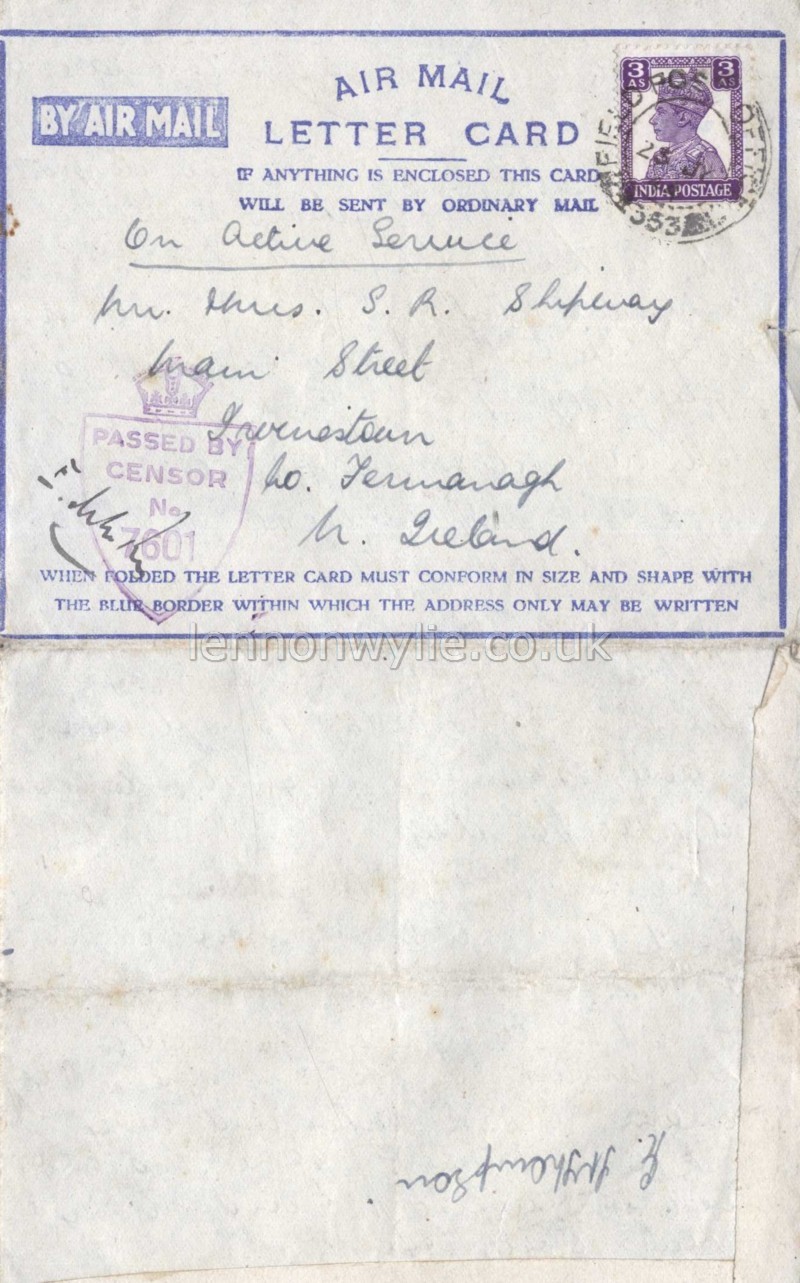 AIR MAIL
BY AIR MAIL
LETTER CARD
IF ANYTHING IS ENCLOSED THIS CARD
WILL BE SENT BY ORDINARY MAIL
3 AS 3 AS
INDIA POSTAGE
FIELD POST OFFICE
23
On Active Service
Mr. & Mrs. S. R. Shipway
Main Street
Irvinestown
Co. Fermanagh
N. Ireland.
PASSED BY
CENSOR
No
7601
WHEN FOLDED THE LETTER CARD MUST CONFORM IN SIZE AND SHAPE WITH
THE BLUE BORDER WITHIN WHICH THE ADDRESS ONLY MAY BE WRITTEN
lennonwylie.co.uk